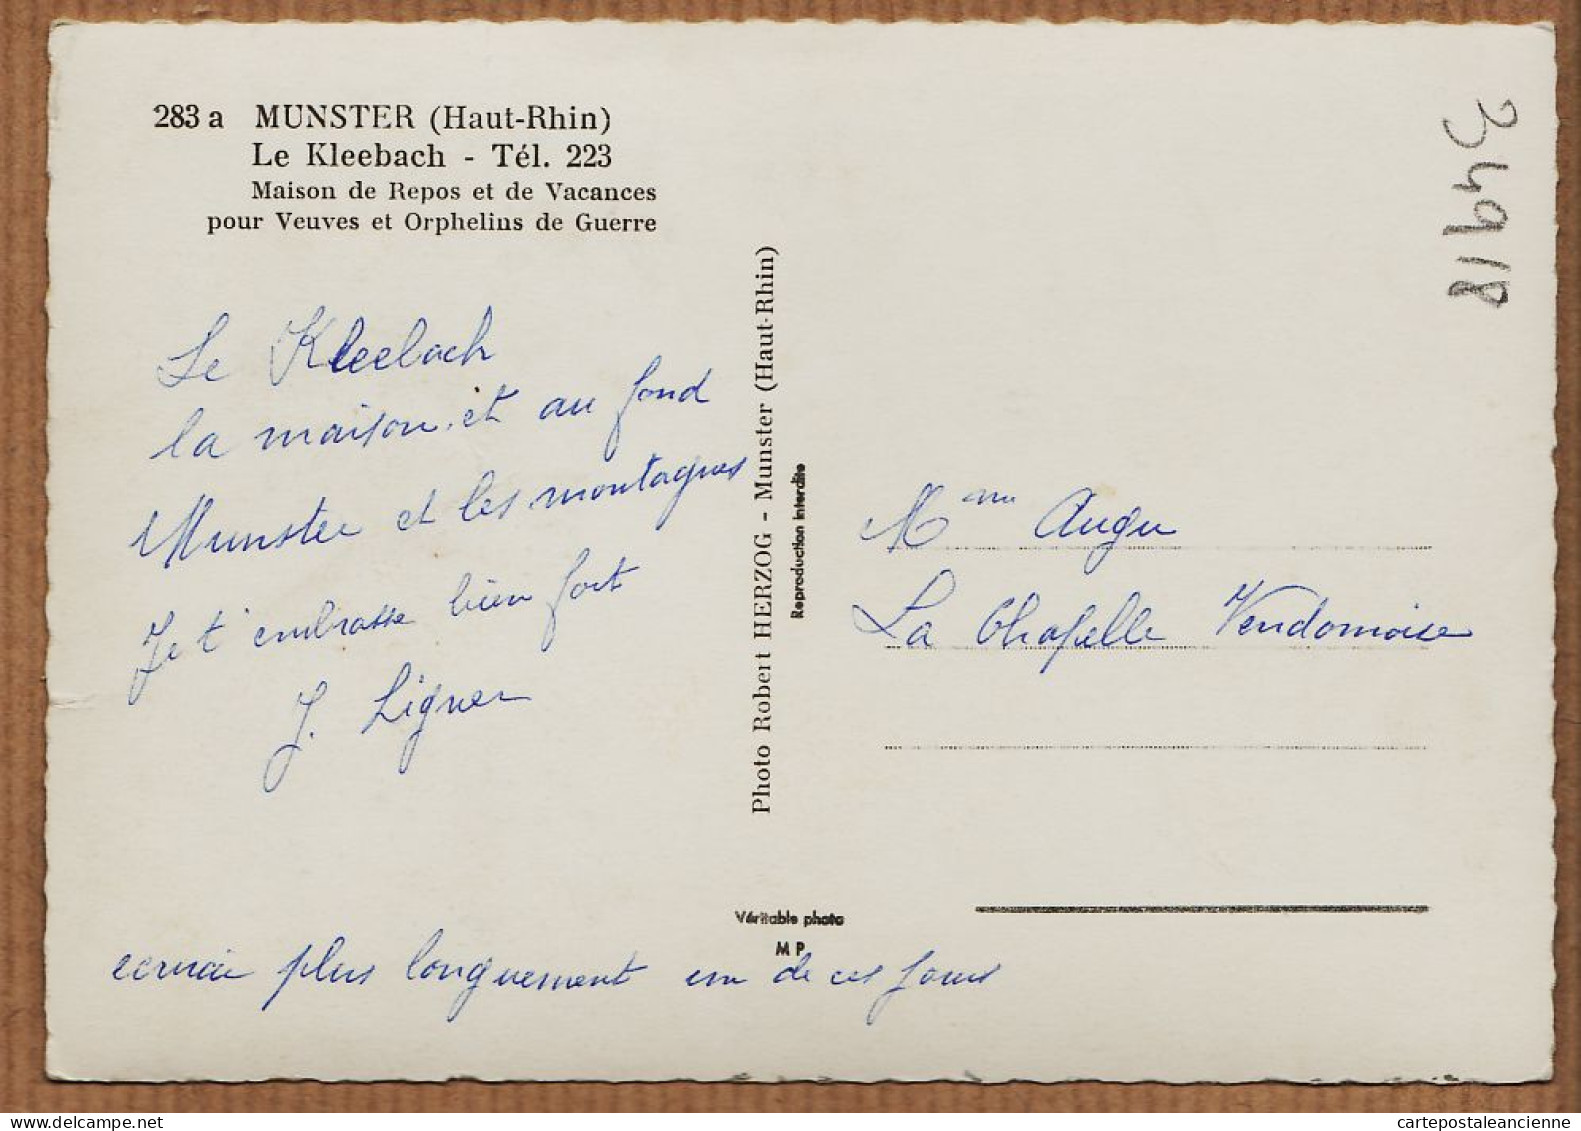 283 a MUNSTER (Haut-Rhin)
Le Kleebach - Tél. 223
Maison de Repos et de Vacances
pour Veuves et Orphelins de Guerre
Le Kleebach
la maison, et au fond
Munster et les montagnes
Je t'embrasse bien fort
J. Ligner
ecrirai plus longuement un de ces jours
Photo Robert HERZOG - Munster (Haut-Rhin)
Reproduction interdite
Véritable photo
M P
34918
Mme Auger
La Chapelle Vendomoise
cartepostaleancienne